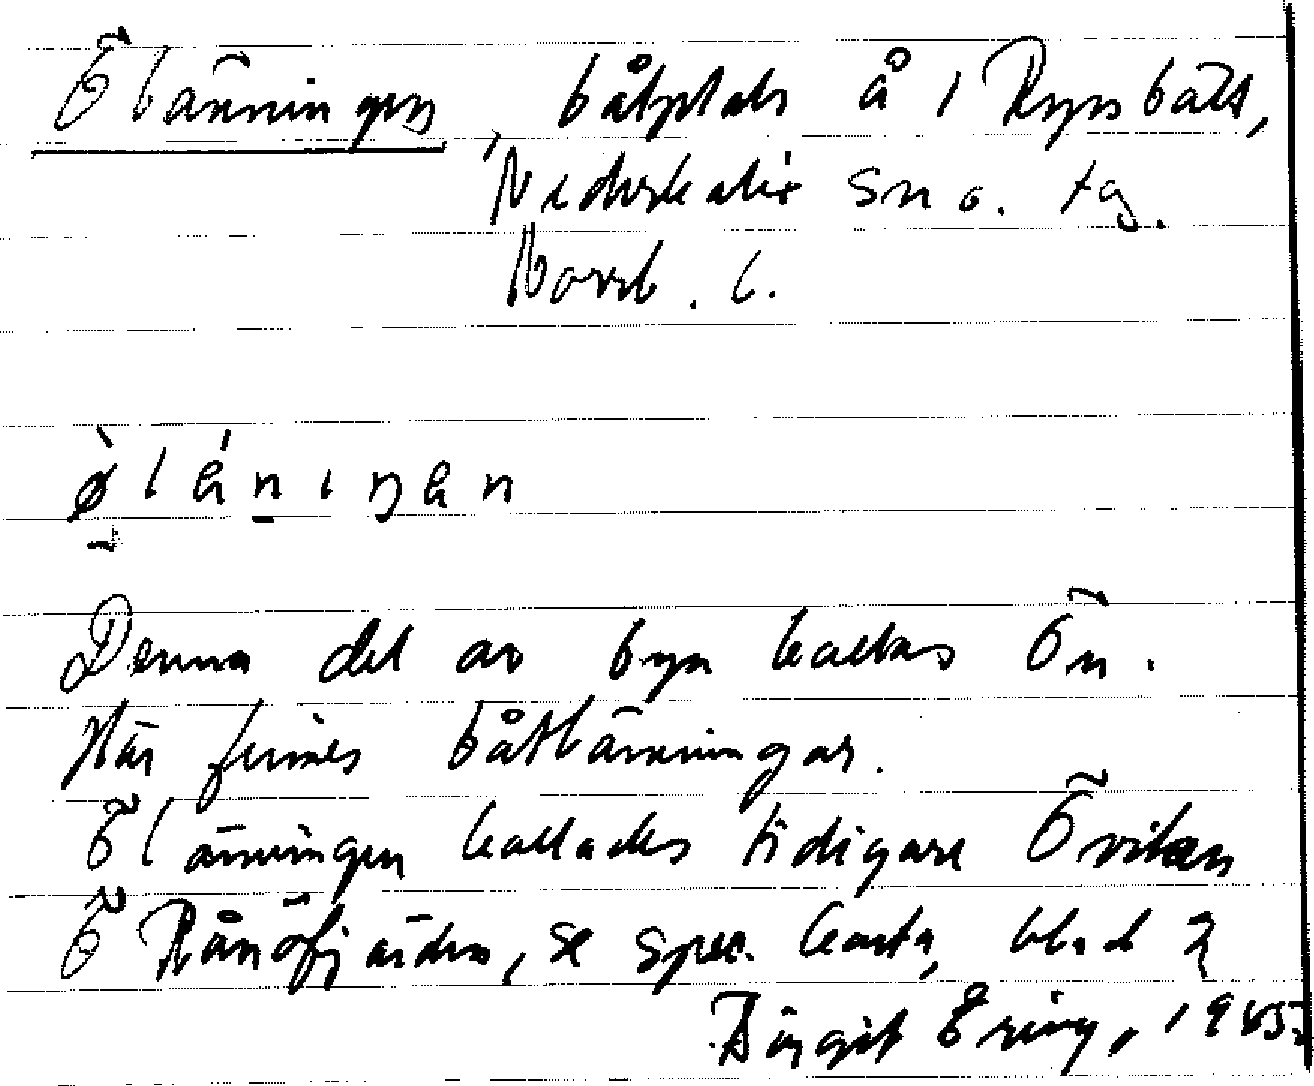 Ölänningen, båtplats å i Ryssbält,
Nederkalix sn o. tg.
Norrb. l.
ø̀lánıŋan
Denna del av byn kallas Ön.
Här finnes båtlänningar.
Ölänningen kallades tidigare Öviken
Ö Rånöfjärden, se spec. karta, blad 2
Birgit Öring, 1945.